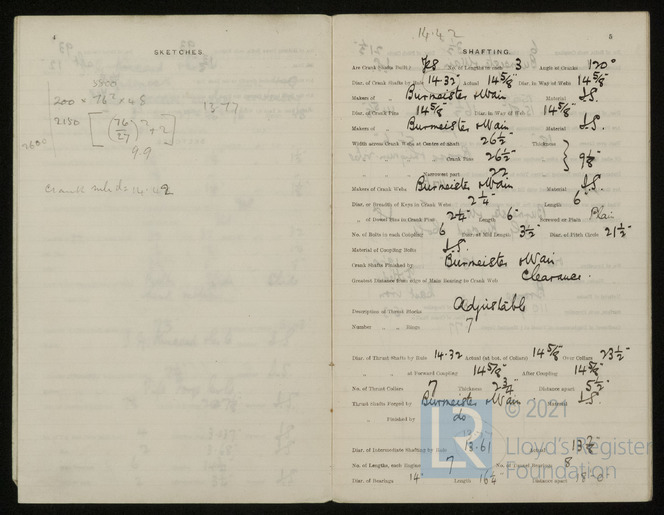 4
SKETCHES
5800
200 × 76² × 48
13.77
2150 [(76/27)² + 2]
9.9
14.42
5
SHAFTING.
Are Crank Shafts Built? Yes No. of Lengths in each 3 Angle of Cranks 120°
Diar. of Crank Shafts by Rule 14.32" Actual 14 5/8" Diar. in Way of Webs 14 5/8"
Makers of Burmeister & Wain Material I.S.
Diar. of Crank Pins 14 5/8" Diar. in Way of Webs 14 5/8"
Makers of Burmeister & Wain Material I.S.
Width across Crank Webs at Centre of Shaft 26 1/2" Thickness
Crank Pins 26 1/2" 9 1/8"
Narrowest part 22
Makers of Crank Webs Burmeister & Wain Material I.S.
Diar. or Breadth of Keys in Crank Webs 2 1/4" Length 6"
of Dowel Pins in Crank Pins 2 1/4" Length 6" Screwed or Plain Plain
No. of Bolts in each Coupling 6 Diar. at Mid Length 3 1/2" Diar. of Pitch Circle 21 1/2"
Material of Coupling Bolts I.S.
Crank Shafts Finished by Burmeister & Wain
Greatest Distance from edge of Main Bearing to Crank Web Clearance.
Description of Thrust Blocks Adjustable
Number " " Rings 7
Diar. of Thrust Shafts by Rule 14.32 Actual (at bot. of Collars) 14 5/8" Over Collars 23 1/2"
" " at Forward Coupling 14 5/8" After Coupling 14 5/8"
No. of Thrust Collars 7 Thickness 2 3/4" Distance apart 5 1/2"
Thrust Shafts Forged by Burmeister & Wain Material I.S.
" Finished by do
Diar. of Intermediate Shafting by Rule 13.61 Actual
No. of Lengths, each Engine 7 No. of Tunnel Bearings 8
Diar. of Bearings 14" Length 16 1/4 Distance apart
LR
© 2021
Lloyd's Register
Foundation